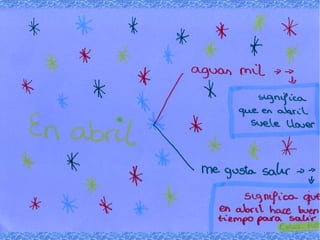 En abril
aguas mil →→
significa
que en abril
suele llover
me gusta salir →→
significa que
en abril hace buen
tiempo para salir